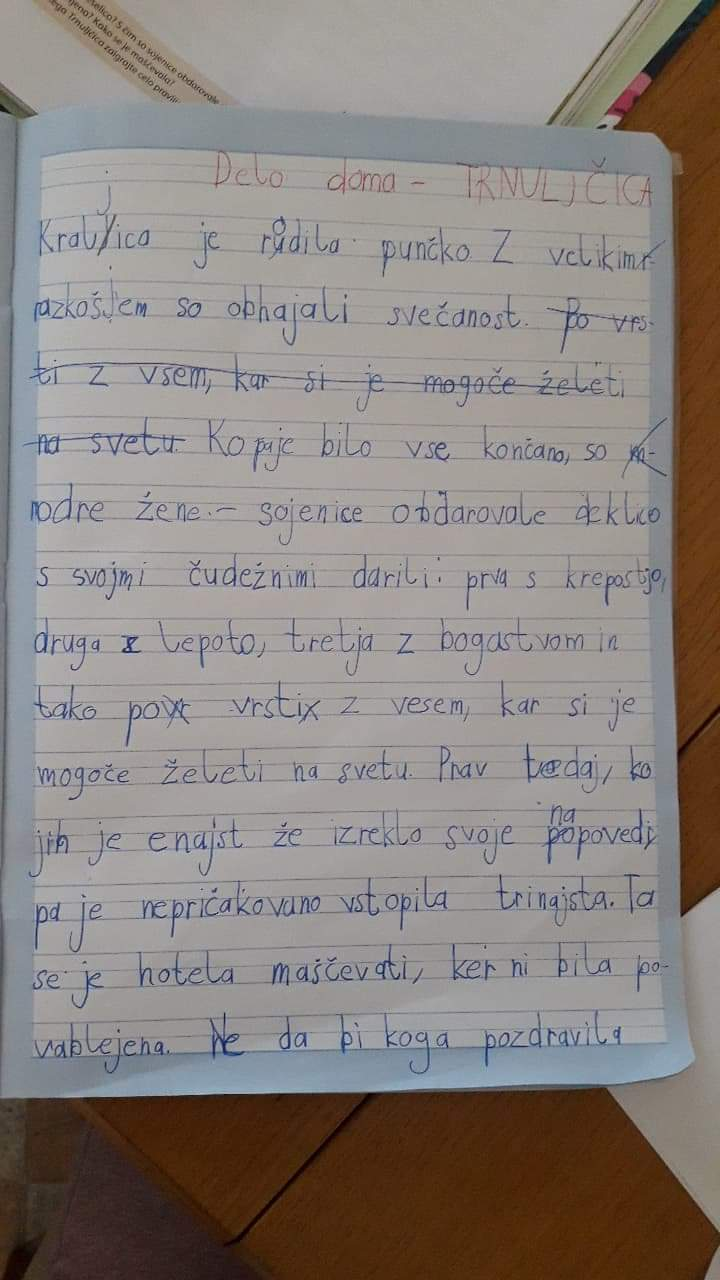 jselico? S čim so sojenice obdarovale
jena? Kako se je maščevala?
ega Trnuljčica zaigrajte celo pravlji
Delo doma - TRNULJČICA
Kraljica je rodila punčko Z velikim
razkošjem so obhajali svečanost. Po vrs-
ti z vsem, kar si je mogoče želeti
na svetu. Ko pa je bilo vse končano, so m-
rodre žene - sojenice obdarovale deklico
s svojmi čudežnimi darili: prva s krepostjo,
druga z lepoto, tretja z bogastvom in
tako po vrsti z vesem, kar si je
mogoče želeti na svetu. Prav tedaj, ko
jih je enajst že izreklo svoje napovedi,
pa je nepričakovano vstopila trinajsta. Ta
se je hotela maščevati, ker ni bila po-
vablejena. Ne da bi koga pozdravila